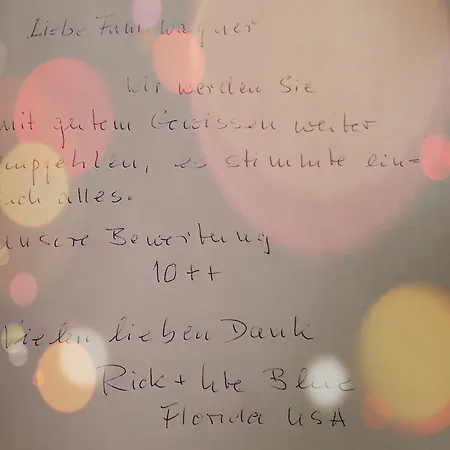 Liebe Fam. Wagner
wir werden Sie
mit gutem Gewissen weiter
empfehlen, es stimmte ein=
fach alles.
unsere Bewertung
10++
Vielen lieben Dank
Rick + Ute Blue
Florida USA